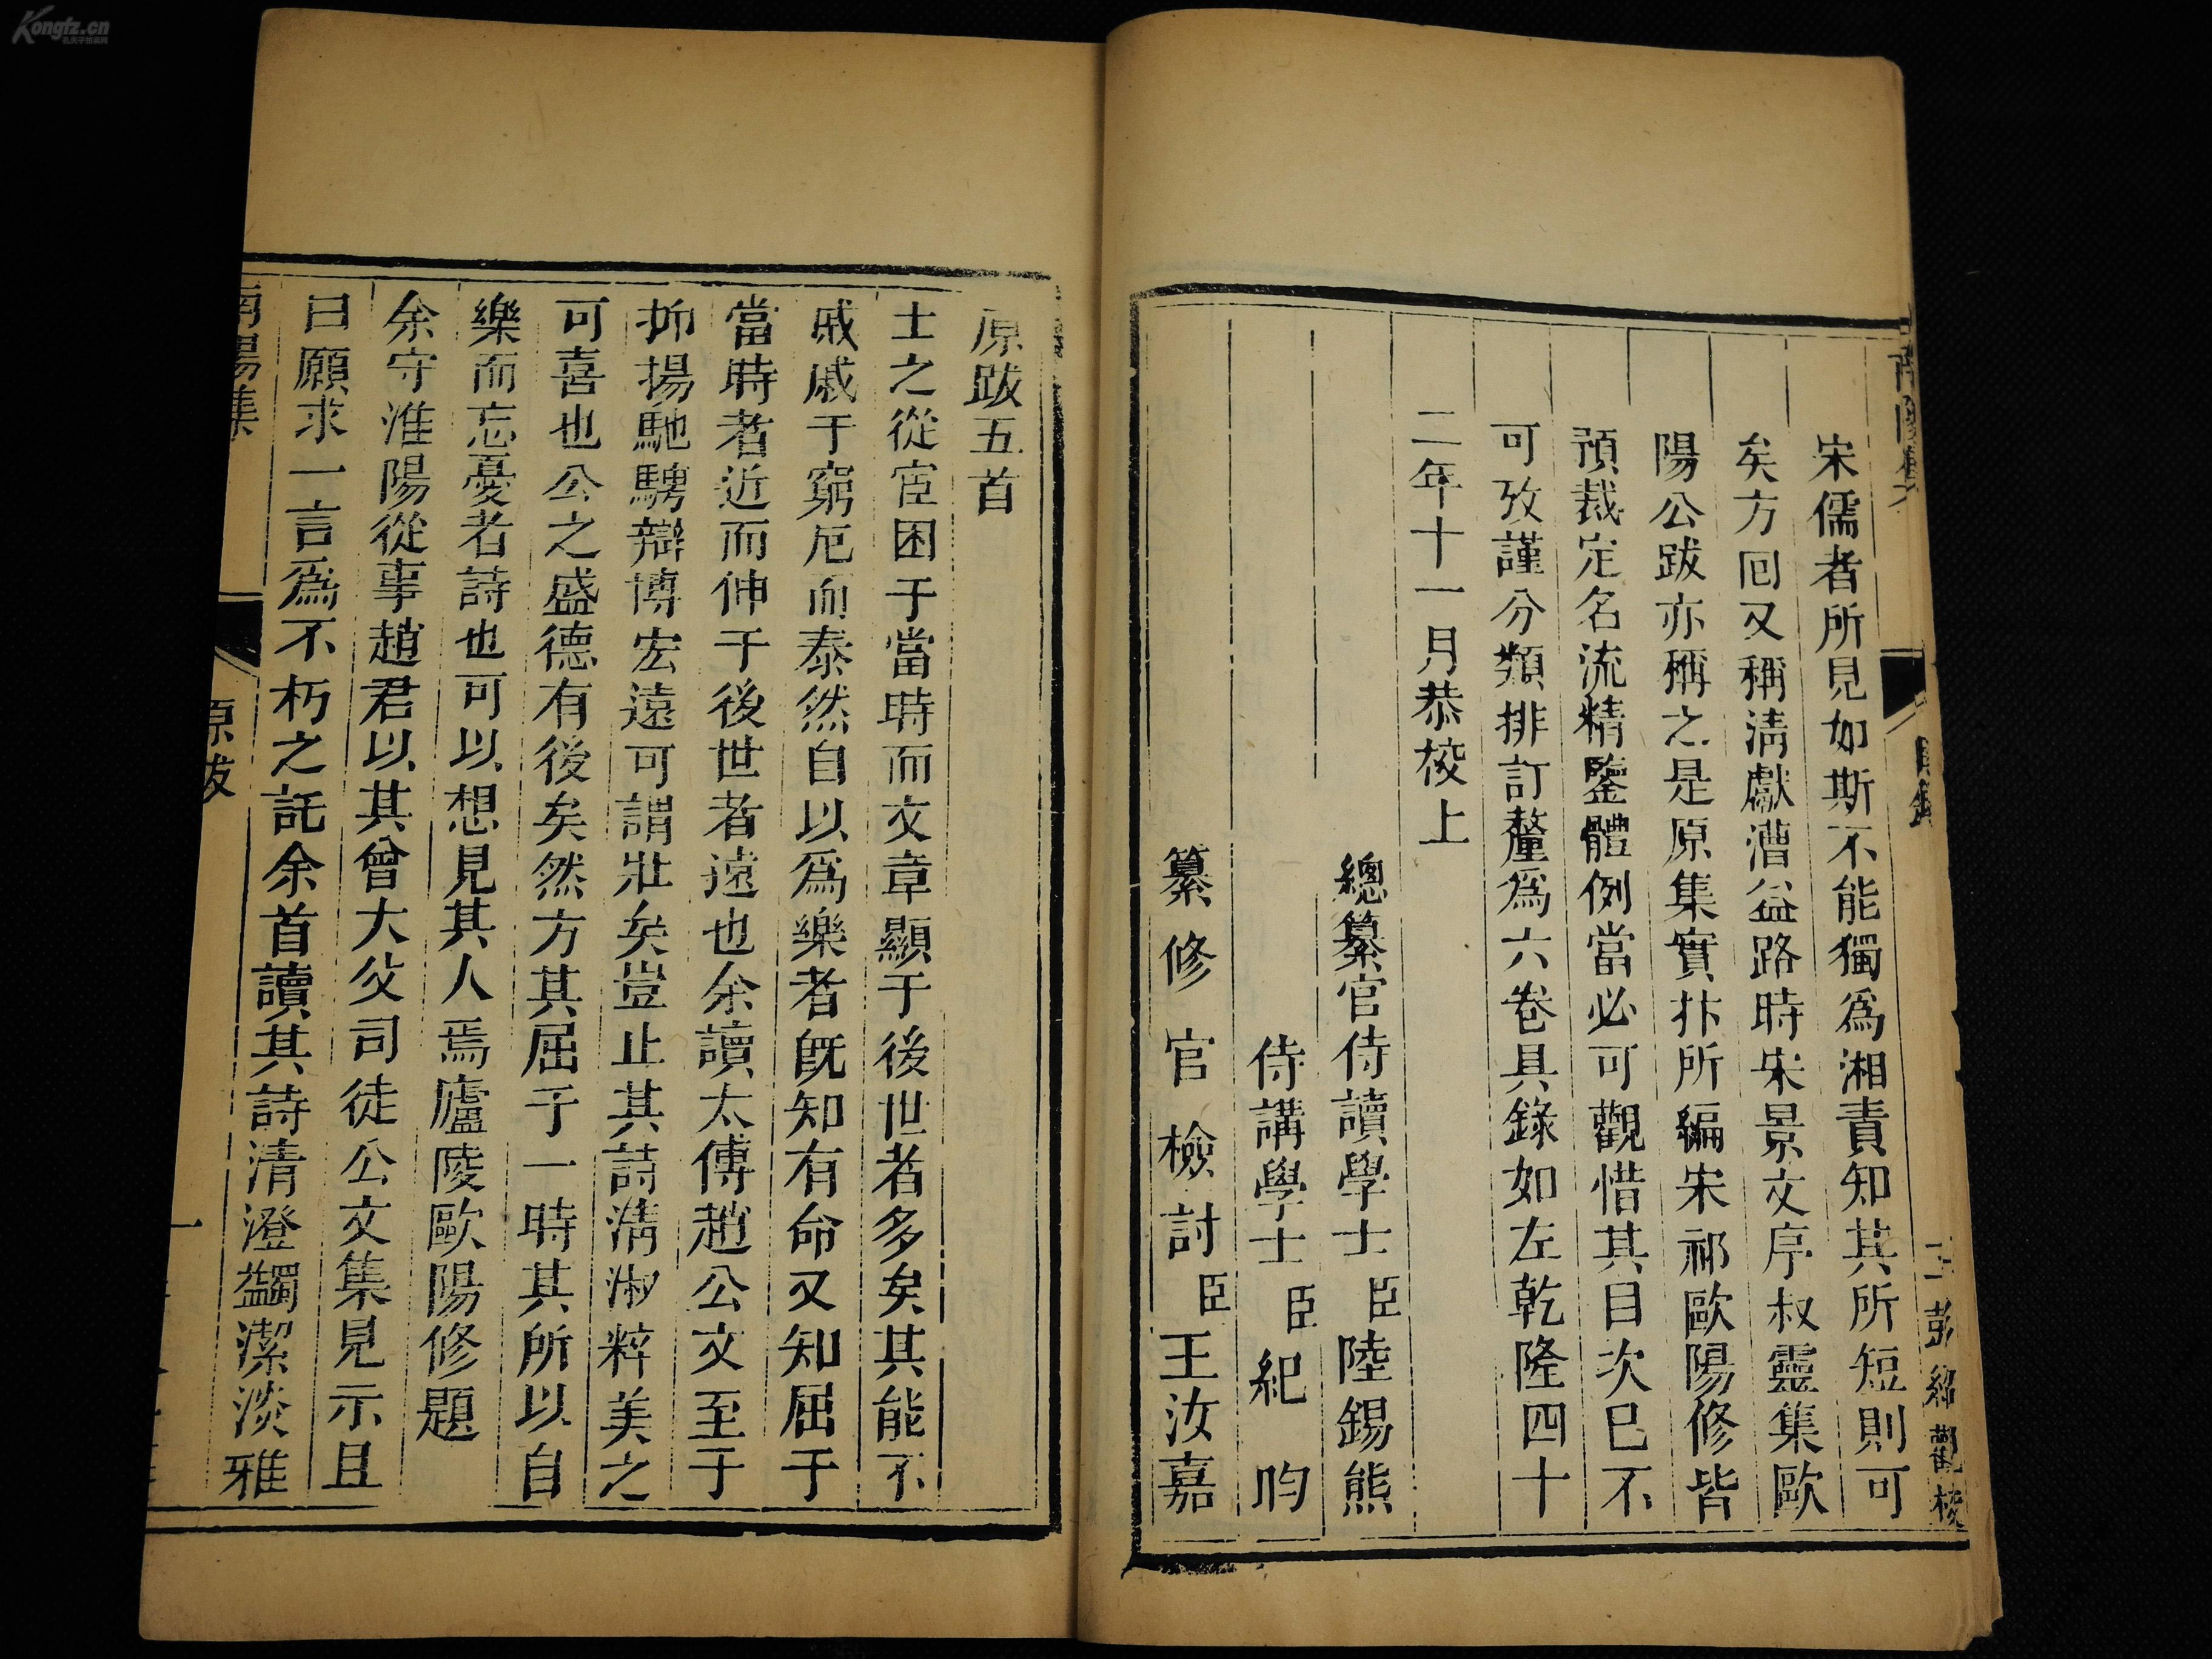 宋儒者所見如斯不能獨爲湘責知其所短則可
矣方回又稱清獻漕益路時宋景文序叔靈集歐
陽公跋亦稱之是原集實抃所編宋祁歐陽修皆
預裁定名流精鑒體例當必可觀惜其目次已不
可攷謹分類排訂釐爲六卷具錄如左乾隆四十
二年十一月恭校上
總纂官侍讀學士臣陸錫熊
侍講學士臣紀昀
纂修官檢討臣王汝嘉
原跋五首
士之從宦困于當時而文章顯于後世者多矣其能不
戚戚于窮厄而泰然自以爲樂者既知有命又知屈于
當時者近而伸于後世者遠也余讀太傅趙公文至于
抑揚馳騁辯博宏遠可謂壯矣豈止其詩淸淑粹美之
可喜也公之盛德有後矣然方其屈于一時其所以自
樂而忘憂者詩也可以想見其人焉廬陵歐陽修題
余守淮陽從事趙君以其曾大父司徒公文集見示且
曰願求一言爲不朽之託余首讀其詩清澄蠲潔淡雅
南陽集 原跋 一
Kongfz.cn